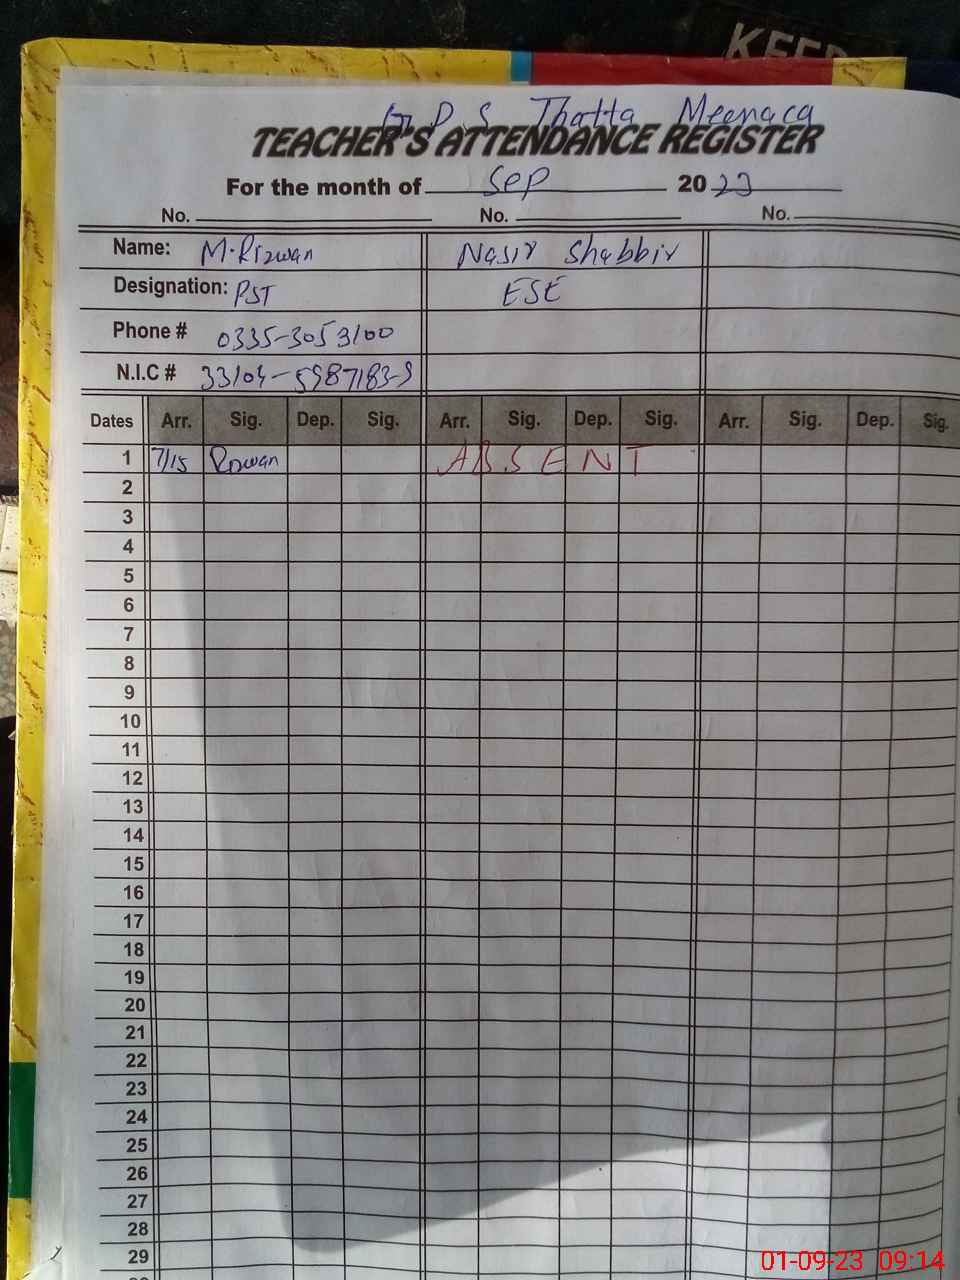 KEEP
G. P. S Thatta Meenaca
TEACHER'S ATTENDANCE REGISTER
For the month of Sep 2023
No. No. No.
Name: M.Rizwan Nasir Shabbir
Designation: PST ESE
Phone # 0335-3053100
N.I.C #
Dates Arr. Sig. Dep. Sig. Arr. Sig. Dep. Sig. Arr. Sig. Dep. Sig.
1 7/15 Rizwan ABSENT
2
3
4
5
6
7
8
9
10
11
12
13
14
15
16
17
18
19
20
21
22
23
24
25
26
27
28
29
01-09-23 09:14